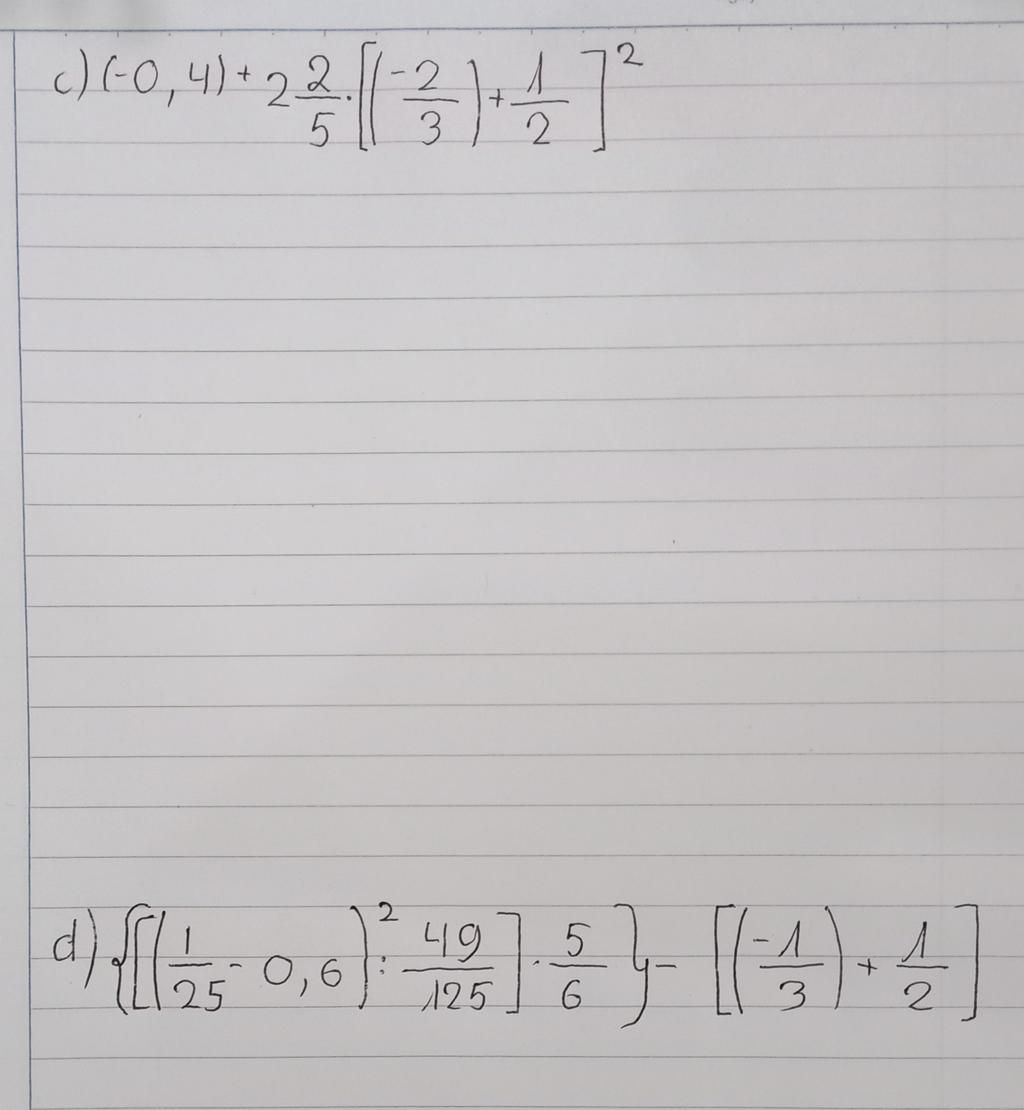 c) (-0,4) + 2 2/5 · [(-2/3) + 1/2]²
d) {[(1/25 - 0,6)² : 49/125] · 5/6} - [(-1/3) + 1/2]